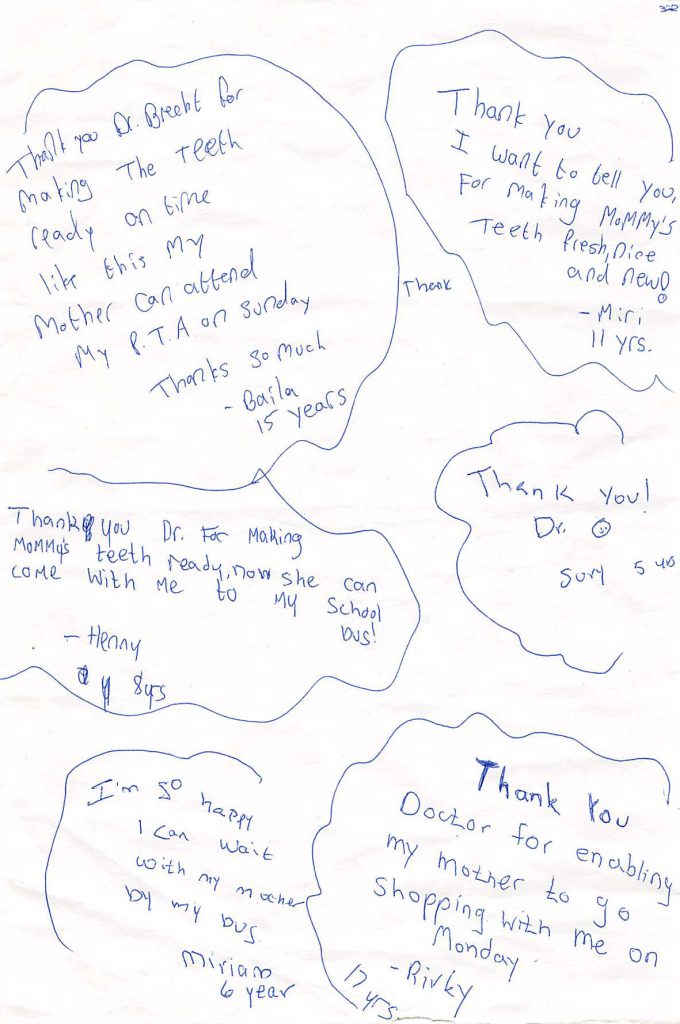 Thank you Dr. Brecht for
making The Teeth
ready on time
like this my
Mother can attend
My P.T.A. on Sunday
Thanks so much
- Baila
15 years
Thank you
I want to tell you,
For making MoMMy's
Teeth fresh, nice
and new!
- Miri
11 yrs.
Thank
Thank you!
Dr.
Sury 5 yrs
Thank you Dr. For Making
MoMMy's teeth ready, now she can
come With Me to My School
bus!
- Henny
8yrs
I'm so happy
I can wait
with my mother
by my bus.
Miriam
6 year
Thank You
Doctor for enabling
my mother to go
shopping with me on
Monday.
- Rivky
17 yrs.